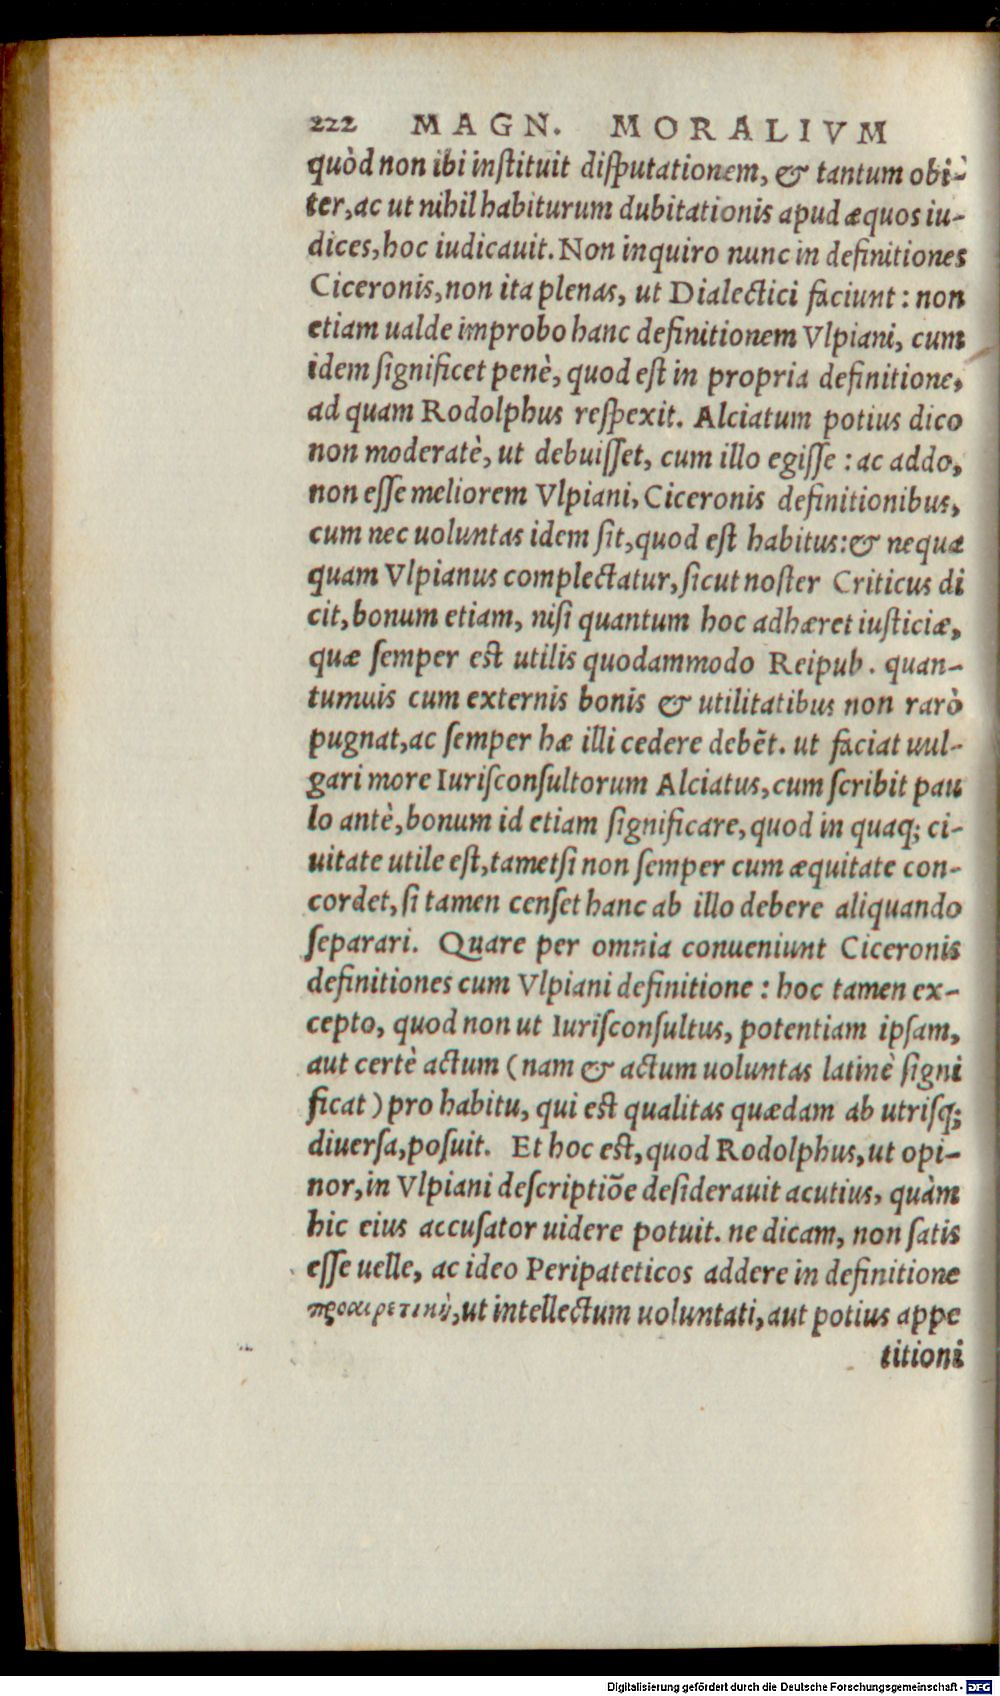 222 MAGN. MORALIVM
quòd non ibi instituit disputationem, & tantum obi-
ter, ac ut nihil habiturum dubitationis apud æquos iu-
dices, hoc iudicauit. Non inquiro nunc in definitiones
Ciceronis, non ita plenas, ut Dialectici faciunt: non
etiam ualde improbo hanc definitionem Vlpiani, cum
idem significet penè, quod est in propria definitione,
ad quam Rodolphus respexit. Alciatum potius dico
non moderatè, ut debuisset, cum illo egisse: ac addo,
non esse meliorem Vlpiani, Ciceronis definitionibus,
cum nec uoluntas idem sit, quod est habitus: & nequa
quam Vlpianus complectatur, sicut noster Criticus di
cit, bonum etiam, nisi quantum hoc adhæret iusticiæ,
quæ semper est utilis quodammodo Reipub. quan-
tumuis cum externis bonis & utilitatibus non rarò
pugnat, ac semper hæ illi cedere debẽt. ut faciat uul-
gari more Iurisconsultorum Alciatus, cum scribit pau
lo antè, bonum id etiam significare, quod in quaq; ci-
uitate utile est, tametsi non semper cum æquitate con-
cordet, si tamen censet hanc ab illo debere aliquando
separari. Quare per omnia conueniunt Ciceronis
definitiones cum Vlpiani definitione: hoc tamen ex-
cepto, quod non ut Iurisconsultus, potentiam ipsam,
aut certè actum (nam & actum uoluntas latinè signi
ficat) pro habitu, qui est qualitas quædam ab utrisq;
diuersa, posuit. Et hoc est, quod Rodolphus, ut opi-
nor, in Vlpiani descriptiõe desiderauit acutius, quàm
hic eius accusator uidere potuit. ne dicam, non satis
esse uelle, ac ideo Peripateticos addere in definitione
προαιρετικὴ, ut intellectum uoluntati, aut potius appe
titioni
Digitalisierung gefördert durch die Deutsche Forschungsgemeinschaft - DFG